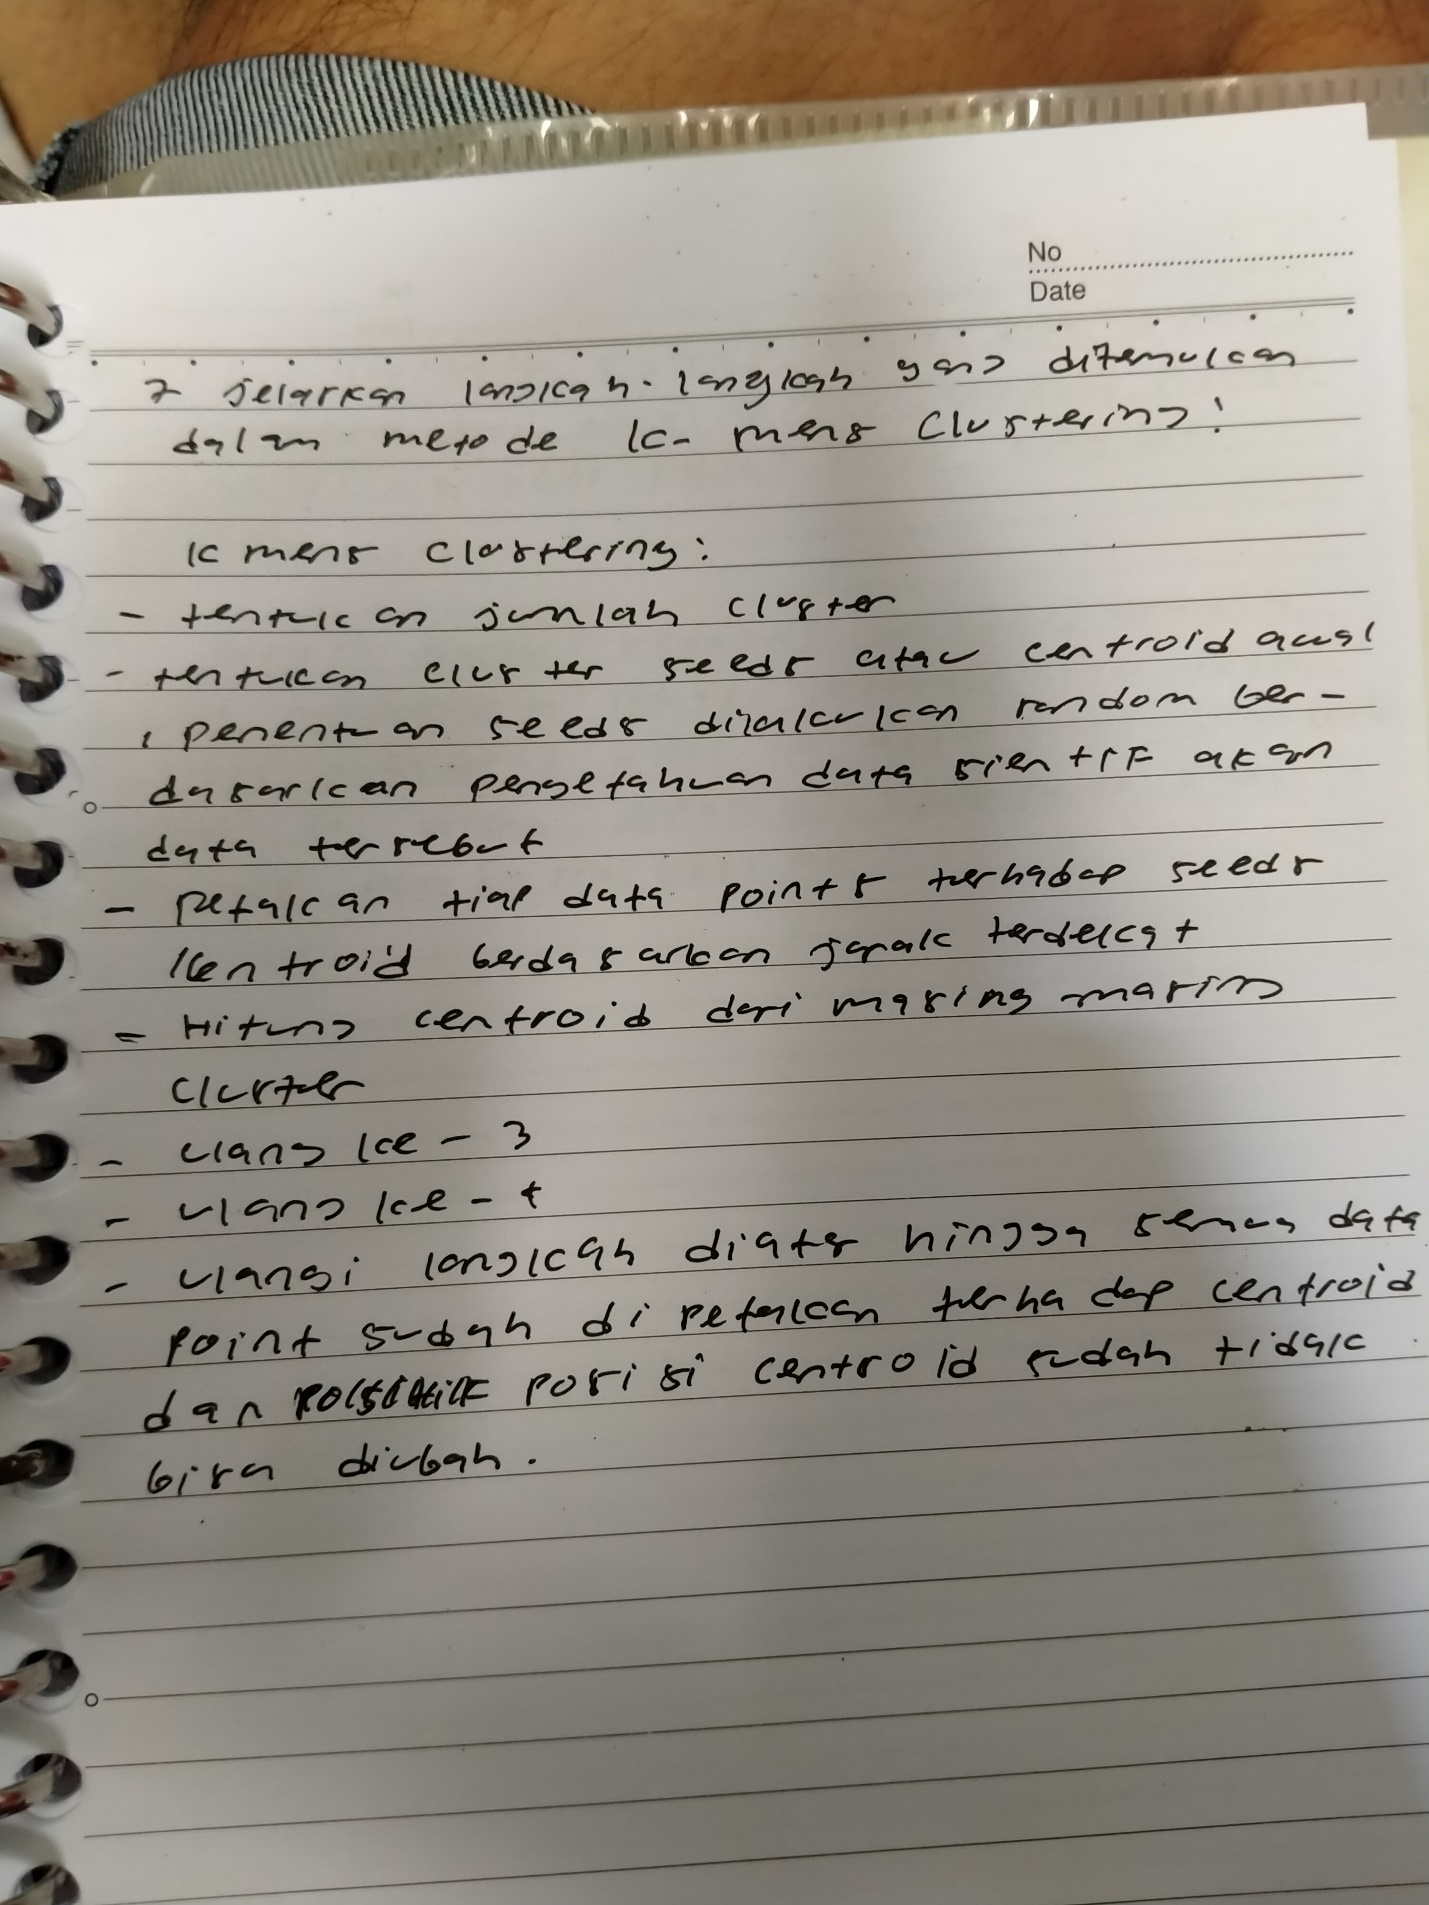 No
Date
7 jelaskan langkah-langkah yang ditemukan
dalam metode K-mens Clustering!
K mens Clustering:
- tentukan jumlah cluster
- tentukan cluster seeds atau centroid awal
, penentuan seeds dilakukan random ber-
dasarkan pengetahuan data sientif akan
data tersebut
- petakan tiap data points terhadap seeds
kentroid berdasarkan jarak terdekat
- Hitung centroid dari masing masing
Cluster
- Ulang ke-3
- Ulang ke-4
- Ulangi langkah diats hingga semua data
point sudah di petakan terhadap centroid
dan posisi centroid sudah tidak
bisa diubah.